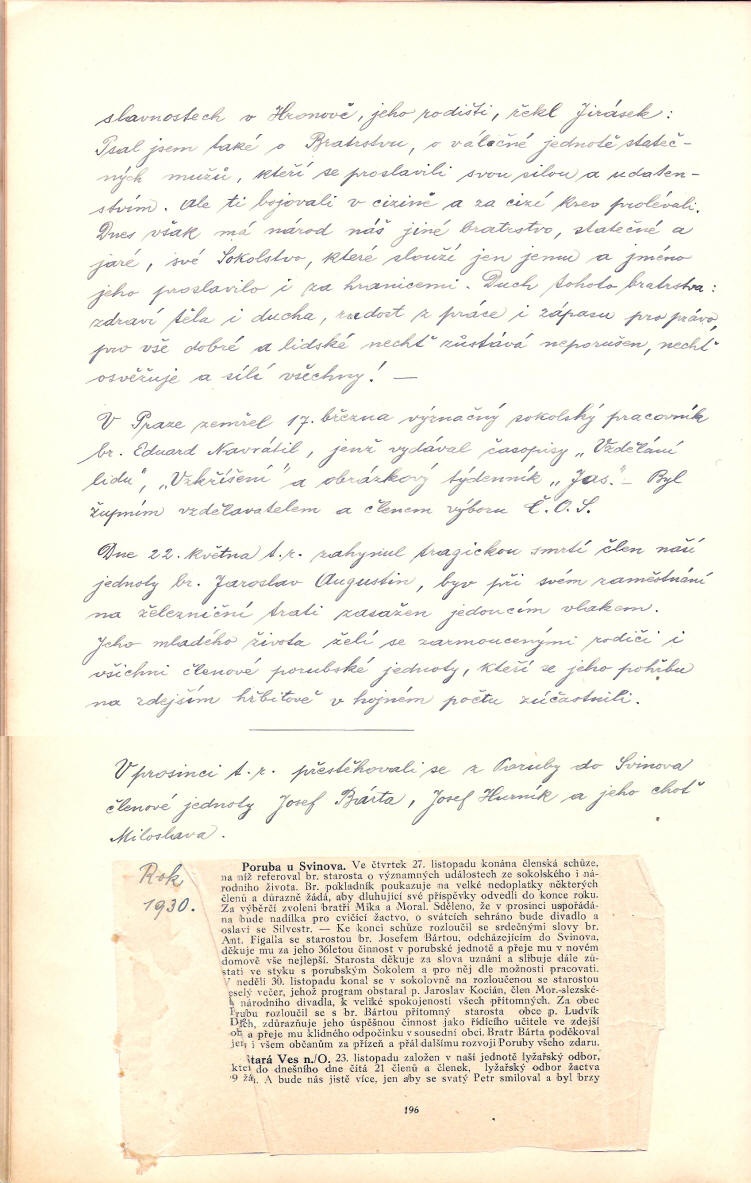 slavnostech v Hronově, jeho rodišti, řekl Jirásek:
Psal jsem také o Bratrstvu, o válečné jednotě stateč-
ných mužů, kteří se proslavili svou silou a udaten-
stvím. Ale ti bojovali v cizině a za cizí krev prolévali.
Dnes však má národ náš jiné bratrstvo, statečné a
jaré, své Sokolstvo, které slouží jen jemu a jméno
jeho proslavilo i za hranicemi. Duch tohoto bratrstva:
zdraví těla i ducha, radost z práce i zápasu pro právo,
pro vše dobré a lidské nechť zůstává neporušen, nechť
osvěžuje a sílí všechny! —
V Praze zemřel 17. března význačný sokolský pracovník
br. Eduard Navrátil, jenž vydával časopisy „Vzdělání
lidu", „Vzkříšení" a obrázkový týdenník „Jas". – Byl
župním vzdělavatelem a členem výboru Č.O.S.
Dne 22. května t.r. zahynul tragickou smrtí člen naší
jednoty br. Jaroslav Augustin, byv při svém zaměstnání
na železniční trati zasažen jedoucím vlakem.
Jeho mladého života želí se zarmoucenými rodiči i
všichni členové porubské jednoty, kteří se jeho pohřbu
na zdejším hřbitově v hojném počtu zúčastnili.
V prosinci t.r. přestěhovali se z Poruby do Svinova
členové jednoty Josef Bárta, Josef Hurník a jeho choť
Miloslava.
Rok
1930.
Poruba u Svinova. Ve čtvrtek 27. listopadu konána členská schůze,
na níž referoval br. starosta o významných událostech ze sokolského i ná-
rodního života. Br. pokladník poukazuje na velké nedoplatky některých
členů a důrazně žádá, aby dluhující své příspěvky odvedli do konce roku.
Za výběrčí zvoleni bratři Mika a Moral. Sděleno, že v prosinci uspořádá-
na bude nadílka pro cvičící žactvo, o svátcích sehráno bude divadlo a
oslaví se Silvestr. — Ke konci schůze rozloučil se srdečnými slovy br.
Ant. Figalla se starostou br. Josefem Bártou, odcházejícím do Svinova,
děkuje mu za jeho 36letou činnost v porubské jednotě a přeje mu v novém
domově vše nejlepší. Starosta děkuje za slova uznání a slibuje dále zů-
stati ve styku s porubským Sokolem a pro něj dle možnosti pracovati.
V neděli 30. listopadu konal se v sokolovně na rozloučenou se starostou
eselý večer, jehož program obstaral p. Jaroslav Kocián, člen Mor.-slezské-
národního divadla, k veliké spokojenosti všech přítomných. Za obec
rubu rozloučil se s br. Bártou přítomný starosta obce p. Ludvík
zdůrazňuje jeho úspěšnou činnost jako řídícího učitele ve zdejší
a přeje mu klidného odpočinku v sousední obci. Bratr Bárta poděkoval
i všem občanům za přízeň a přál dalšímu rozvoji Poruby všeho zdaru.
Stará Ves n./O. 23. listopadu založen v naší jednotě lyžařský odbor,
do dnešního dne čítá 21 členů a členek, lyžařský odbor žactva
A bude nás jistě více, jen aby se svatý Petr smiloval a byl brzy
196